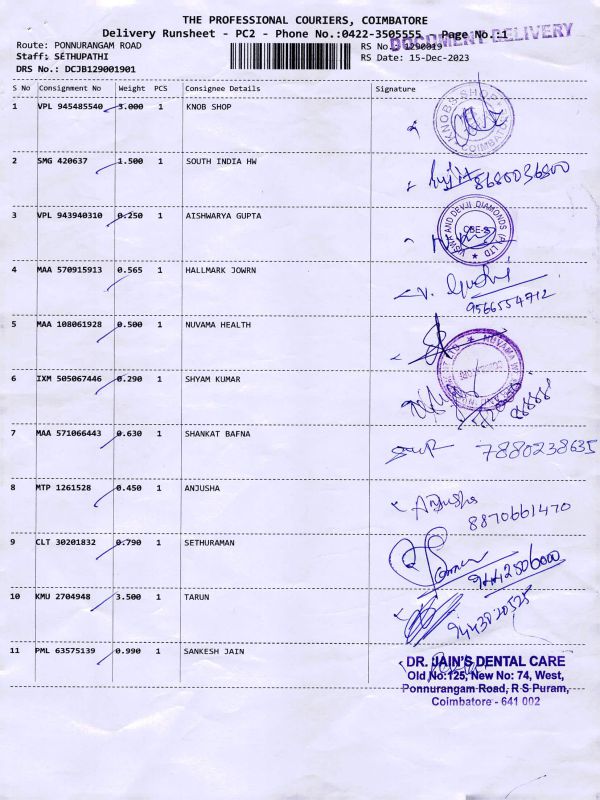 THE PROFESSIONAL COURIERS, COIMBATORE
Delivery Runsheet - PC2 - Phone No.:0422-3505555 Page No.:1
DOCUMENT DELIVERY
Route: PONNURANGAM ROAD RS No.: 1290019
Staff: SETHUPATHI RS Date: 15-Dec-2023
DRS No.: DCJB129001901
S No Consignment No Weight PCS Consignee Details Signature
1 VPL 945485540 3.000 1 KNOB SHOP
KNOBS SHOP COIMBATORE
2 SMG 420637 1.500 1 SOUTH INDIA HW
8680036800
3 VPL 943940310 0.250 1 AISHWARYA GUPTA
AND DEVJI DIAMONDS (P) LTD CBE-2
4 MAA 570915913 0.565 1 HALLMARK JOWRN
9566554712
5 MAA 108061928 0.500 1 NUVAMA HEALTH
NUVAMA
6 IXM 505067446 0.290 1 SHYAM KUMAR
7 MAA 571066443 0.630 1 SHANKAT BAFNA
7880238635
8 MTP 1261528 0.450 1 ANJUSHA
Anjusha
8870661470
9 CLT 30201832 0.790 1 SETHURAMAN
9442506000
10 KMU 2704948 3.500 1 TARUN
11 PML 63575139 0.990 1 SANKESH JAIN
DR. JAIN'S DENTAL CARE
Old No:125, New No: 74, West,
Ponnurangam Road, R S Puram,
Coimbatore - 641 002